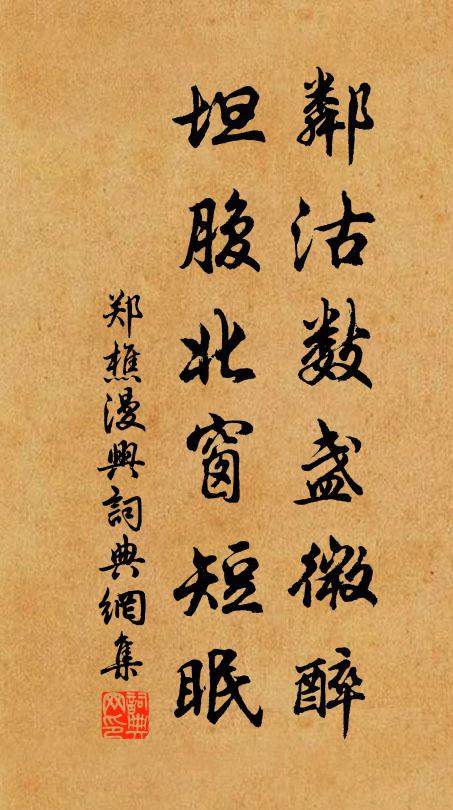 鄰沽数盏微醉
坦腹北窗短眠
郑樵漫興詞典網集
詞典網印